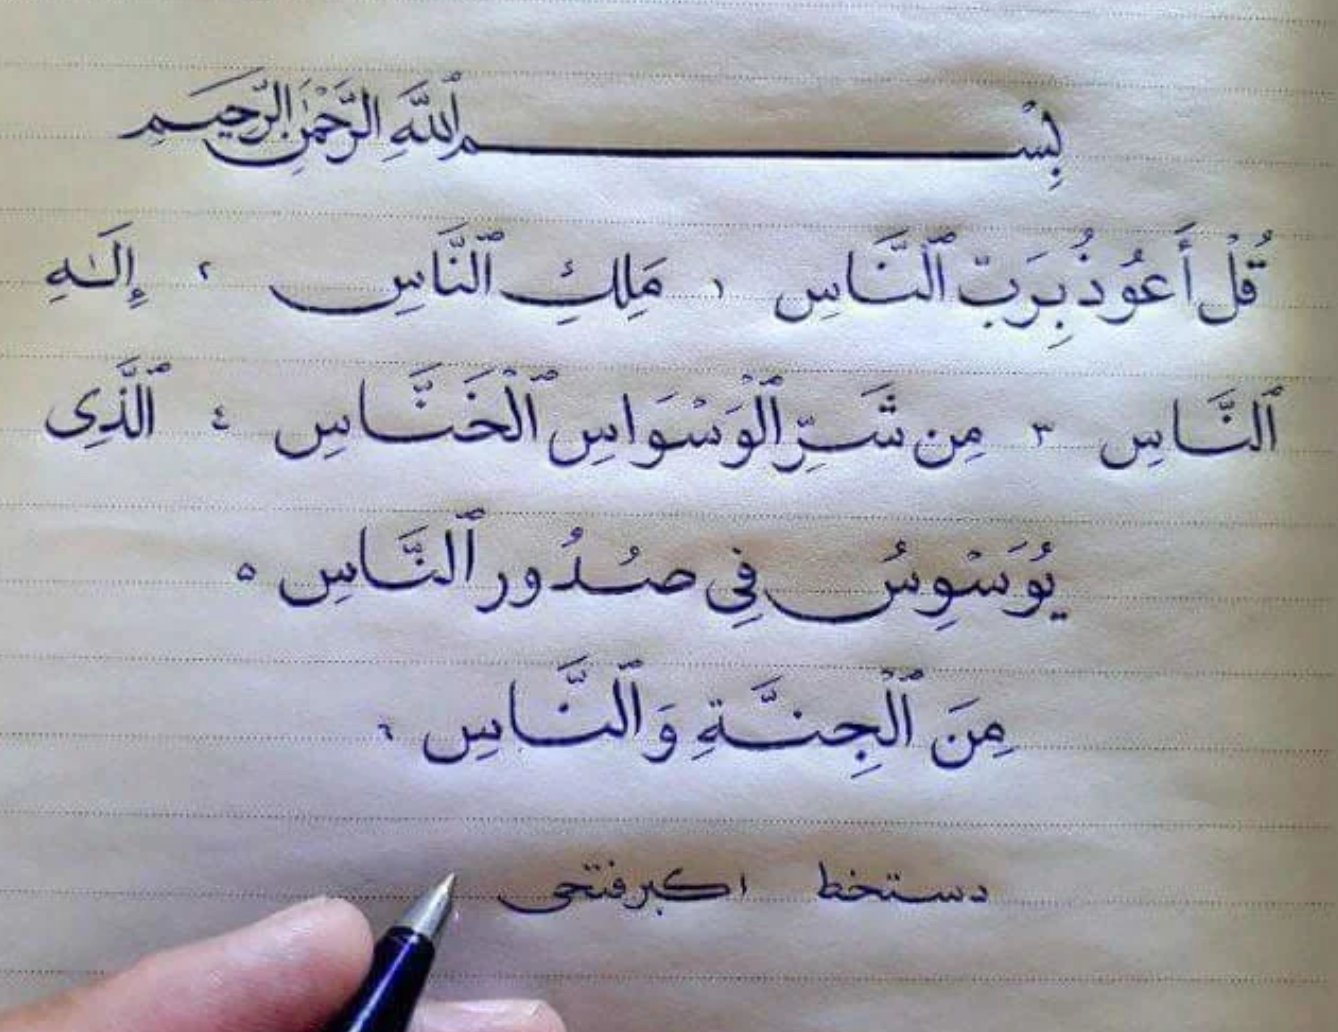 بِسْمِ ٱللَّهِ الرَّحْمَٰنِ الرَّحِيمِ
قُلْ أَعُوذُ بِرَبِّ ٱلنَّاسِ ١ مَلِكِ ٱلنَّاسِ ٢ إِلَٰهِ
ٱلنَّاسِ ٣ مِن شَرِّ ٱلْوَسْوَاسِ ٱلْخَنَّاسِ ٤ ٱلَّذِى
يُوَسْوِسُ فِى صُدُورِ ٱلنَّاسِ ٥
مِنَ ٱلْجِنَّةِ وَٱلنَّاسِ ٦
دستخط اکبر فتحی